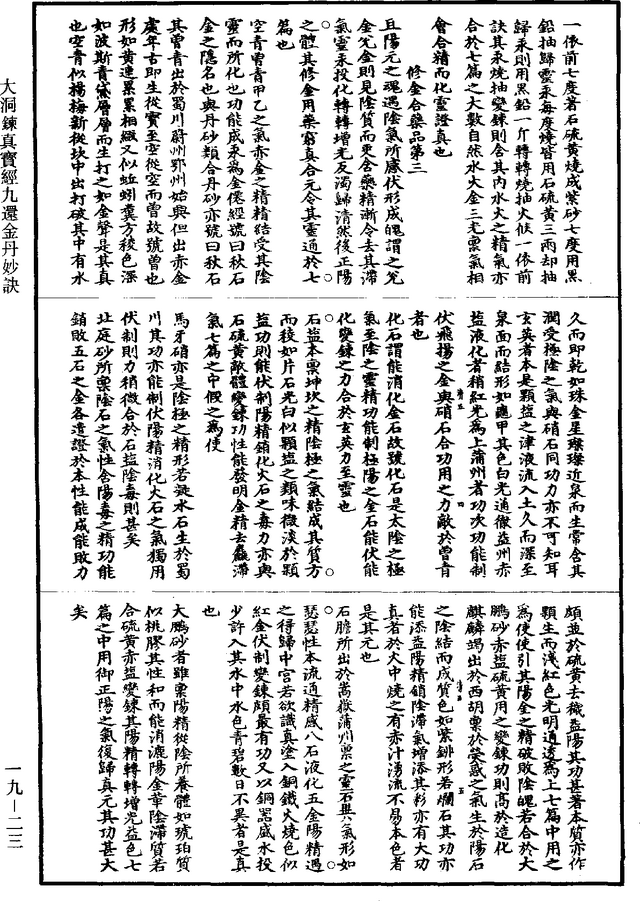 一依前七度著石硫黃燒成紫砂七度用黑
鉛抽歸靈汞每度燒皆用石硫黃三兩却抽
歸汞則用黑鉛一斤轉轉燒抽火候一依前
訣其汞燒抽變鍊則含其內水火之精氣亦
合於七篇之大數自然水火金三光稟氣相
會合精而化靈證真也
修金合藥品第三
且陽元之魂遇陰氣所靡伏形成魄謂之光
金光金則見陰質而更含藥精漸令去其滯
氣靈汞投化轉轉增光反濁歸清然後正陽
之體其修金用藥窮真合元令其靈通於七
篇也
空青曾青甲乙之氣亦金之精精結受其陰
靈而所化也功能成汞為金偬經號曰秋石
金之隱名也與丹砂類合丹砂亦號曰秋石
其曾青出於蜀川蔚州鄂州始與但出赤金
處年古即生從實至空從空而曾故號曾也
形如黃連累累相綴又似蚯蚓糞方稜色深
如波斯青黛層層而生打之如金聲是其真
也空青似楊梅新從坎中出打破其中有水
久而即乾如珠金星璨璨近泉而生常含其
潤受極陰之氣與硝石同功力亦不可知耳
玄英者本是顆鹽之津液流入土久而深至
泉面而結形如龜甲其色白光通徹益州赤
鹽液化者稍紅光為上蒲州者功次功能制
伏飛揚之金與硝石合功用之力敵於曾青
者也
化石謂能消化金石故號化石是太陰之極
氣至陰之靈精功能制極陽之金石能伏能
化變鍊之力合於玄英力至靈也
石鹽本稟坤坎之精陰極之氣結成其質方
而稜如片石光白似顆鹽之類味微淡於顆
鹽功則能伏制陽精銷化火石之毒力亦與
石硫黃敵體變鍊功性能發明金精去麤滯
氣七篇之中假之為使
馬牙硝亦是陰極之精形若凝水石生於蜀
川其功亦能制伏陽精消化火石之氣獨用
伏制則力稍微合於石鹽陰毒則甚矣
北庭砂所稟陰石之氣性含陽毒之精功能
銷敗五石之金各遣證於本性能成能敗力
頗並於硫黃去穢益陽其功甚著本質亦作
顆生而淺紅色光明通透為上七篇中用之
為使使引其陽金之精破敗陰魄若合於大
鵬砂赤鹽硫黃用之變鍊功則高於造化
麒麟竭出於西胡稟於熒惑之氣生於陽石
之陰結而成質色如紫鉚形若爛石其功亦
能添益陽精銷陰滯氣增添其彩亦有大功
真者於火中燒之有赤汁湧流不易本色者
是其元也
石膽所出於嵩嶽蒲州稟之靈石異氣形如
瑟瑟性本流通精感八石液化五金陽精遇
之得歸中宮若欲識真塗入銅鐵火燒色似
紅金伏制變鍊頗最有功又以銅器盛水投
少許入其水中水色青碧數日不異者是真
也
大鵬砂者雖稟陽精從陰所養體如琥珀質
似桃膠其性和而能消漉陽金華陰滯質若
合硫黃赤鹽變鍊其陽精轉轉增光益色七
篇之中用御正陽之氣復歸真元其功甚大
矣
大洞鍊真寶經九還金丹妙訣
一九－二三